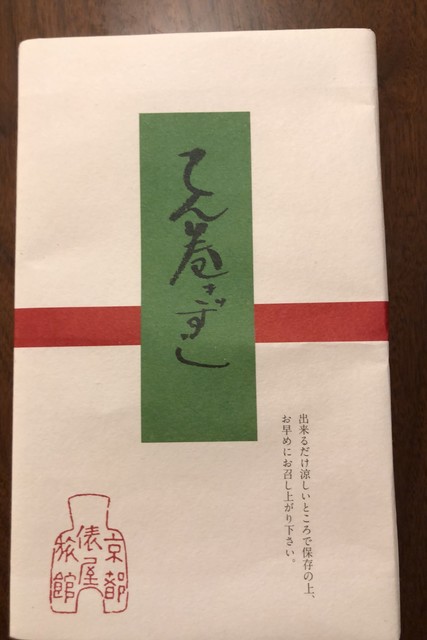 てん巻きずし
出来るだけ涼しいところで保存の上、
お早めにお召し上がり下さい。
京都
俵屋
旅館